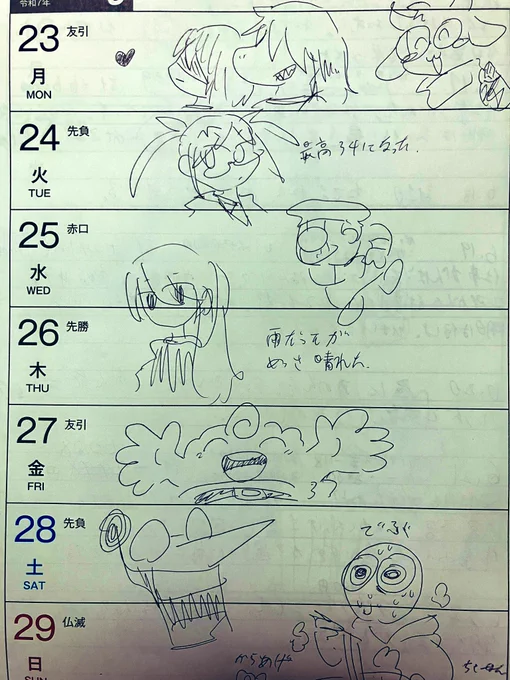 令和7年
23 友引
月
MON
24 先負
火
TUE
最高34になった.
25 赤口
水
WED
26 先勝
木
THU
雨だったが
めっさ晴れた.
27 友引
金
FRI
37
28 先負
土
SAT
でぶぐ
29 仏滅
日
SUN
からあげ